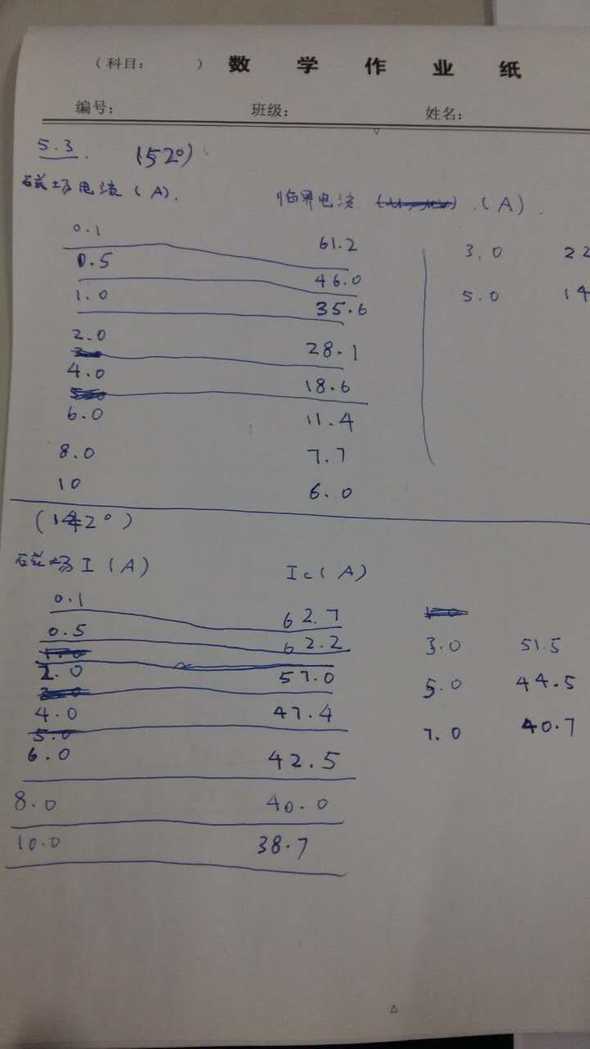 (科目: ) 数 学 作 业 纸
编号: 班级: 姓名:
5.3. (52°)
磁场电流(A). 临界电流 (A).
0.1 61.2
0.5 46.0
1.0 35.6
2.0 28.1
4.0 18.6
6.0 11.4
8.0 7.7
10 6.0
3.0 22
5.0 14
(142°)
磁场I(A) Ic(A)
0.1 62.7
0.5 62.2
2.0 57.0
4.0 47.4
5.0
6.0 42.5
8.0 40.0
10.0 38.7
3.0 51.5
5.0 44.5
7.0 40.7